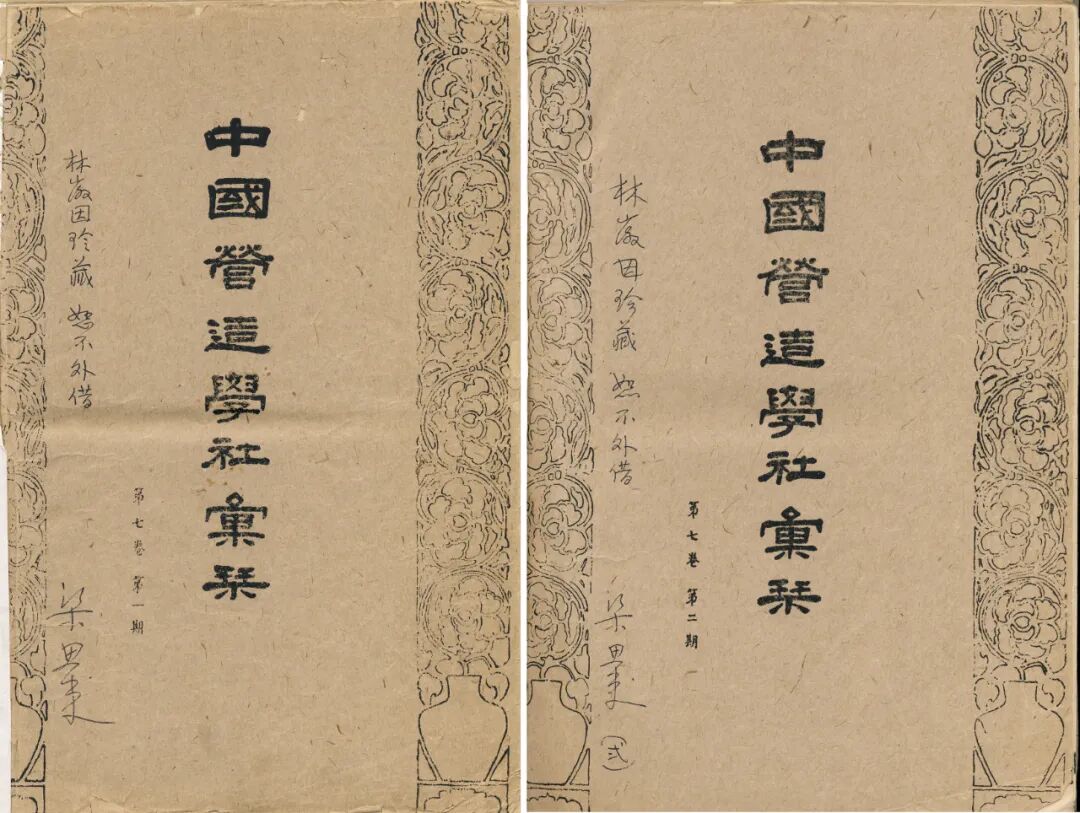 中國營造學社彙栞
第七卷 第一期
林徽因珍藏 恕不外借
梁思成
中國營造學社彙栞
第七卷 第二期
林徽因珍藏 恕不外借
梁思成 (弍)